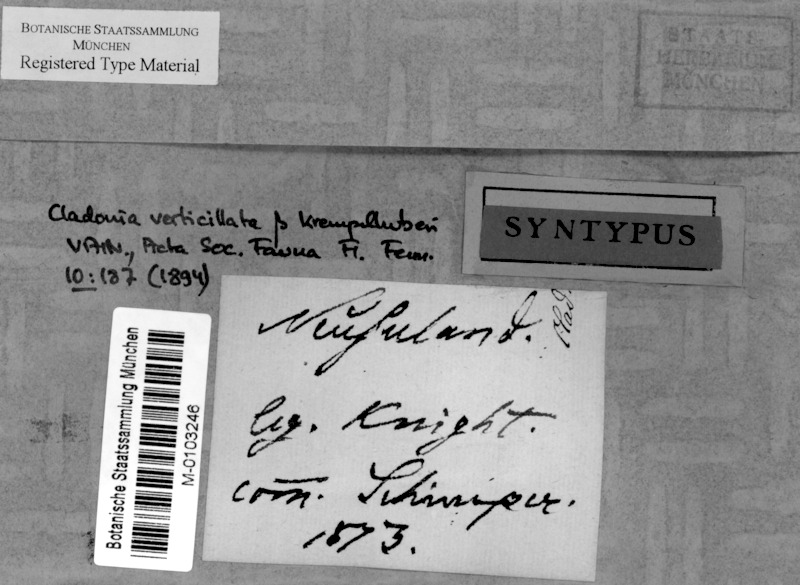 BOTANISCHE STAATSSAMMLUNG
MÜNCHEN
Registered Type Material
STAATS-
HERBARIUM
MÜNCHEN
Cladonia verticillata β Krempelhuberi
VAIN., Acta Soc. Fauna Fl. Fenn.
10:187 (1894)
SYNTYPUS
Clad.
Neuseeland.
leg. Knight.
com. Schimper.
1873.
Botanische Staatssammlung München
M-0103246